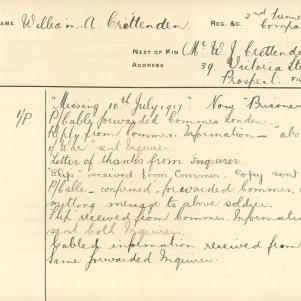 NAME William A. Crottenden. REG. &C. 2nd Tunne
Compa
NEXT OF KIN (Mr W. J. Crottende
ADDRESS 39, Victoria Str
Prospect. F
"Missing 10th July 1917." Now "Prisoner
I/P P/Cably forwarded Commrs London.
Reply from Commrs. Information — "abov
of War" sent Inquirer.
Letter of thanks from Inquirer.
"Slip" received from Commr. Copy sent
P/Cable - confirmed - forwarded Commrs.
mitting message to above soldier.
Slip received from Commrs. Informati
sent both Inquirer.
Cabled information received from
Same forwarded Inquirer.